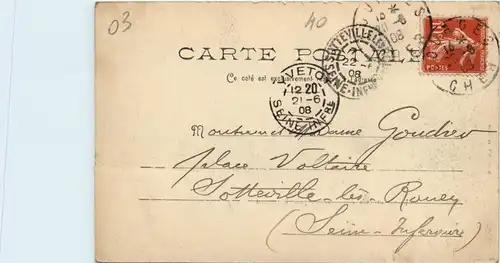 03
40
CARTE POSTALE
Ce côté est exclusivement
SOTTEVILLE
22-6
08
SEINE-INF
YVETOT
12 20
21-6
08
SEINE INFRE
10
POSTES
Monsieur et Madame Goudier
place Voltaire
Sotteville-lès-Rouen
(Seine-Inférieure)